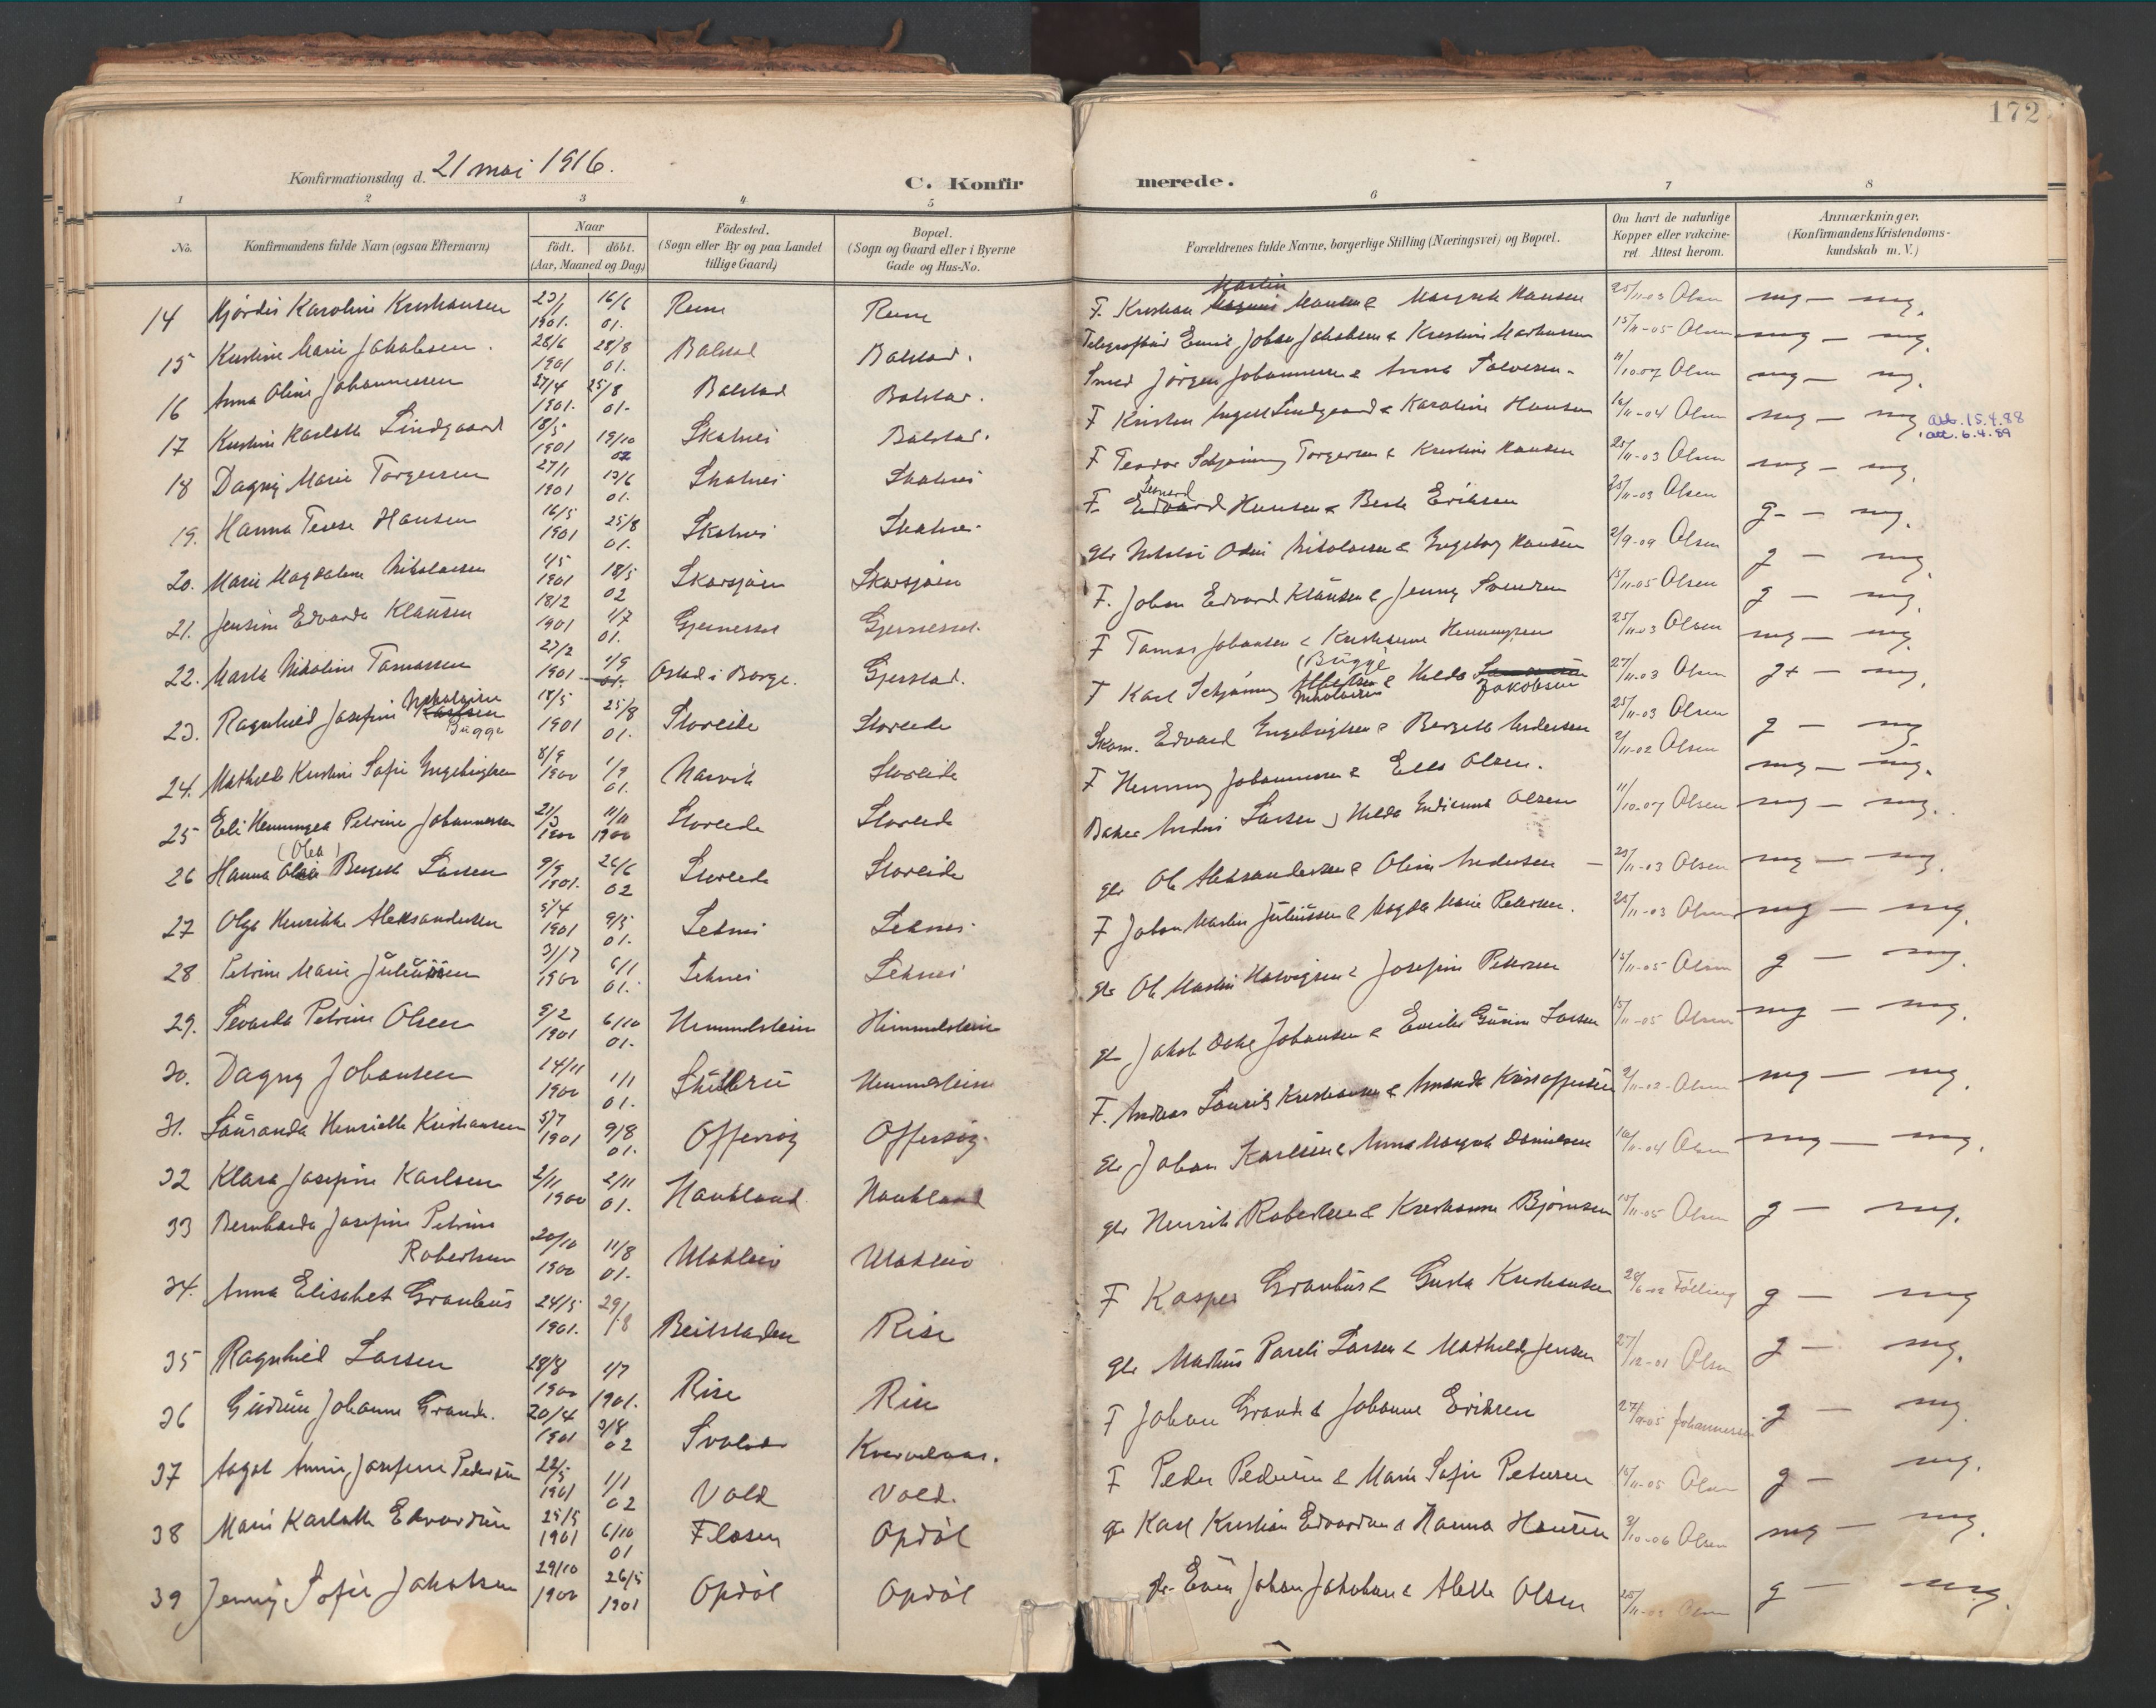 172
Konfirmationsdag d. 21 mai 1916.
C. Konfir merede.
1 2 3 4. 5 6 7 8
No. Konfirmandens fulde Navn (ogsaa Efternavn) Naar födt. döbt. (Aar, Maaned og Dag) Födested. (Sogn eller By og paa Landet tillige Gaard) Bopæl. (Sogn og Gaard eller i Byerne Gade og Hus-No. Forældrenes fulde Navne, borgerlige Stilling (Næringsvei) og Bopæl. Om havt de naturlige Kopper eller vakcineret. Attest herom. Anmærkninger. (Konfirmandens Kristendomskundskab m. V.)
14 Hjördis Karoline Kristiansen 23/1 1901. 16/6 01. F. Kristian Martin Hansen & Margrete Hansen 25/11-03 Olsen mg — mg.
15 Kristine Marie Jakobsen. 28/6 1901 28/8 01. Balstad Balstad. Emil Johan Jakobsen & Kristine Markussen 15/11-05 Olsen mg — mg.
16 Anna Oline Johannessen 27/4 1901. 25/8 01. Balstad Balstad. Smed Jörgen Johannessen & Anna Salvesen. 11/10-07 Olsen mg — mg.
17 Kristine Karlotte Lindgaard 18/5 1901 19/10 02 Skatnes Balstad. F Kristen Lindgaard & Karoline Hansen 16/11-04 Olsen mg — mg att. 6.4.89 15.4.88
18 Dagny Marie Torgersen 27/1 1901 13/6 01. Skotnes Skotnes F Teodor Schjönning Torgersen & Kristine Hansen 25/11-03 Olsen mg — mg.
19. Hanna Terese Hansen 16/5 1901 25/8 01. Skotnes Skotnes F. Edvard Hansen & Eriksen 25/11-03 Olsen g — mg.
20. Marie Magdalene Nikolaisen 1/5 1901 18/5 02 Skarsjöen Skarsjöen gbr Nikolai Odin Nikolaisen & Ingeborg Hansen 2/9-09 Olsen g — mg.
21. Jensine Edvarda Klausen 18/2 1901 1/7 01. Gjernesset Gjernesset. F. Johan Edvard Klausen & Jenny Svendsen 15/11-05 Olsen g — mg.
22. Marta Nikoline Tomassen 27/2 1901. 1/9 01. Ostad i Borge. Gjerstad. F Tomas Johansen & Kristianne Henningsen 25/11-03 Olsen mg — mg.
23. Ragnhild Josefine Nikolaisen Karlsen Bugge 18/5 1901 25/8 01. Storeide Storeide F Karl Schjönning Nikolaisen (Bugge) & Hilda Jakobsen 27/11-03 Olsen g+ — mg.
24. Mathilde Kristine Sofie Ingebrigtsen 8/9 1900 1/9 01. Narvik Storeide Skom. Edvard Ingebrigtsen & Bergitte Andersen 25/11-03 Olsen g — mg
25 Eli Henningea Petrine Johannessen 21/3 1900 11/11 1900 Storeide Storeide F Henning Johannessen & Ellen Olsen. 2/11-02 Olsen mg — mg.
26 Hanna (Olea) Bergitte Larsen 9/9 1901. 26/6 02 Storeide Storeide Baker Anders Larsen & Hilda Indianna Olsen 11/10-07 Olsen mg — mg.
27 Olga Henrikke Aleksandersen 5/4 1901 9/5 01. Leknes Leknes. gbr Ole Aleksandersen & Oline Andersen — 25/11-03 Olsen mg — mg.
28 Petrine Marie Juliussen 31/7 1900 6/1 01. Leknes Leknes F Johan Martin Juliussen & Magda Marie Petersen. 25/11-03 Olsen mg — mg.
29. Sevarda Petrine Olsen 9/2 1901 6/10 01. Himmelstein Himmelstein gbr Ole Martin Halvorsen & Josefine Petersen 15/11-05 Olsen g — mg.
30. Dagny Johansen 14/11 1900 1/1 01. Himmelstein gbr Jakob Johansen & Emilie Larsen 15/11-05 Olsen mg — mg.
31. Lauranda Henriette Kristiansen 5/7 1901 9/8 01. Offersöy Offersöy. F. Andreas Laurits Kristiansen & Amanda Kristoffersen 2/11-02 Olsen mg — mg.
32 Klara Josefine Karlsen 2/11 1900 2/11 01. Haukland Haukland gbr Johan Karlsen & Anna Margrete Danielsen 16/11-04 Olsen mg — mg.
33 Bernharda Josefine Petrine Robertsen 20/10 1900 11/8 01. Utakleiv Utakleiv gbr Henrik Robertsen & Kristianna Björnsen 15/11-05 Olsen g — mg.
34. Anna Elisabet Granhus 24/5 1901. 29/8 Beitstaden Rise F Kasper Granhus & Gusta Kristiansen 28/6-02 Fölling g — mg
35 Ragnhild Larsen 28/8 1900 1/7 1901. Rise Rise gbr Markus Pareli Larsen & Mathilde Jensen 27/12-01 Olsen g — mg.
36 Gudrun Johanne Grande. 20/4 1901 3/8 02 Svolvær F Johan Grande & Johanne Eriksen 27/9-05 Johannessen g — mg.
37 Aagot Annie Josefine Pedersen 22/5 1901 1/1 02 Vold Vold. F Peder Pedersen & Marie Sofie Petersen 15/11-05 Olsen g — mg.
38 Marie Karlotte Edvardsen 25/5 1901 6/10 01 Flosen Opdöl gbr Karl Kristian Edvardsen & Hanna Hansen 3/10-06 Olsen mg — mg.
39 Jenny Sofie Jakobsen 29/10 1900 26/5 1901 Opdöl Opdöl gbr. Even Johan Jakobsen & Alette Olsen 25/11-03 Olsen g — mg.